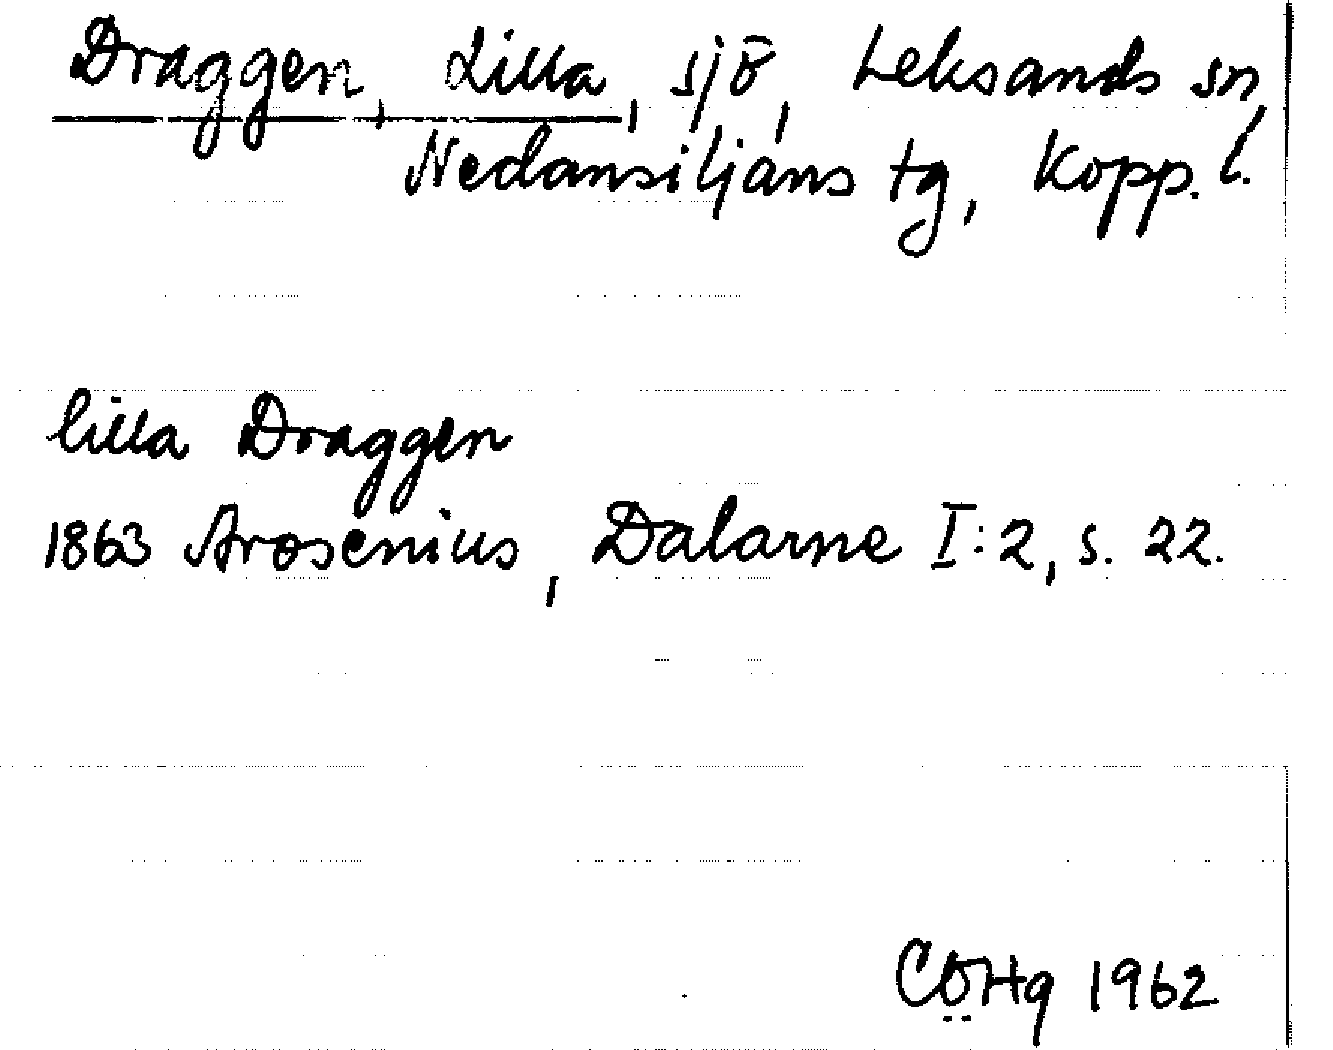 Draggen, Lilla, sjö, Leksands sn,
Nedansiljans tg, Kopp. l.
lilla Draggen
1863 Arosenius, Dalarne I:2, s. 22.
CÖHg 1962